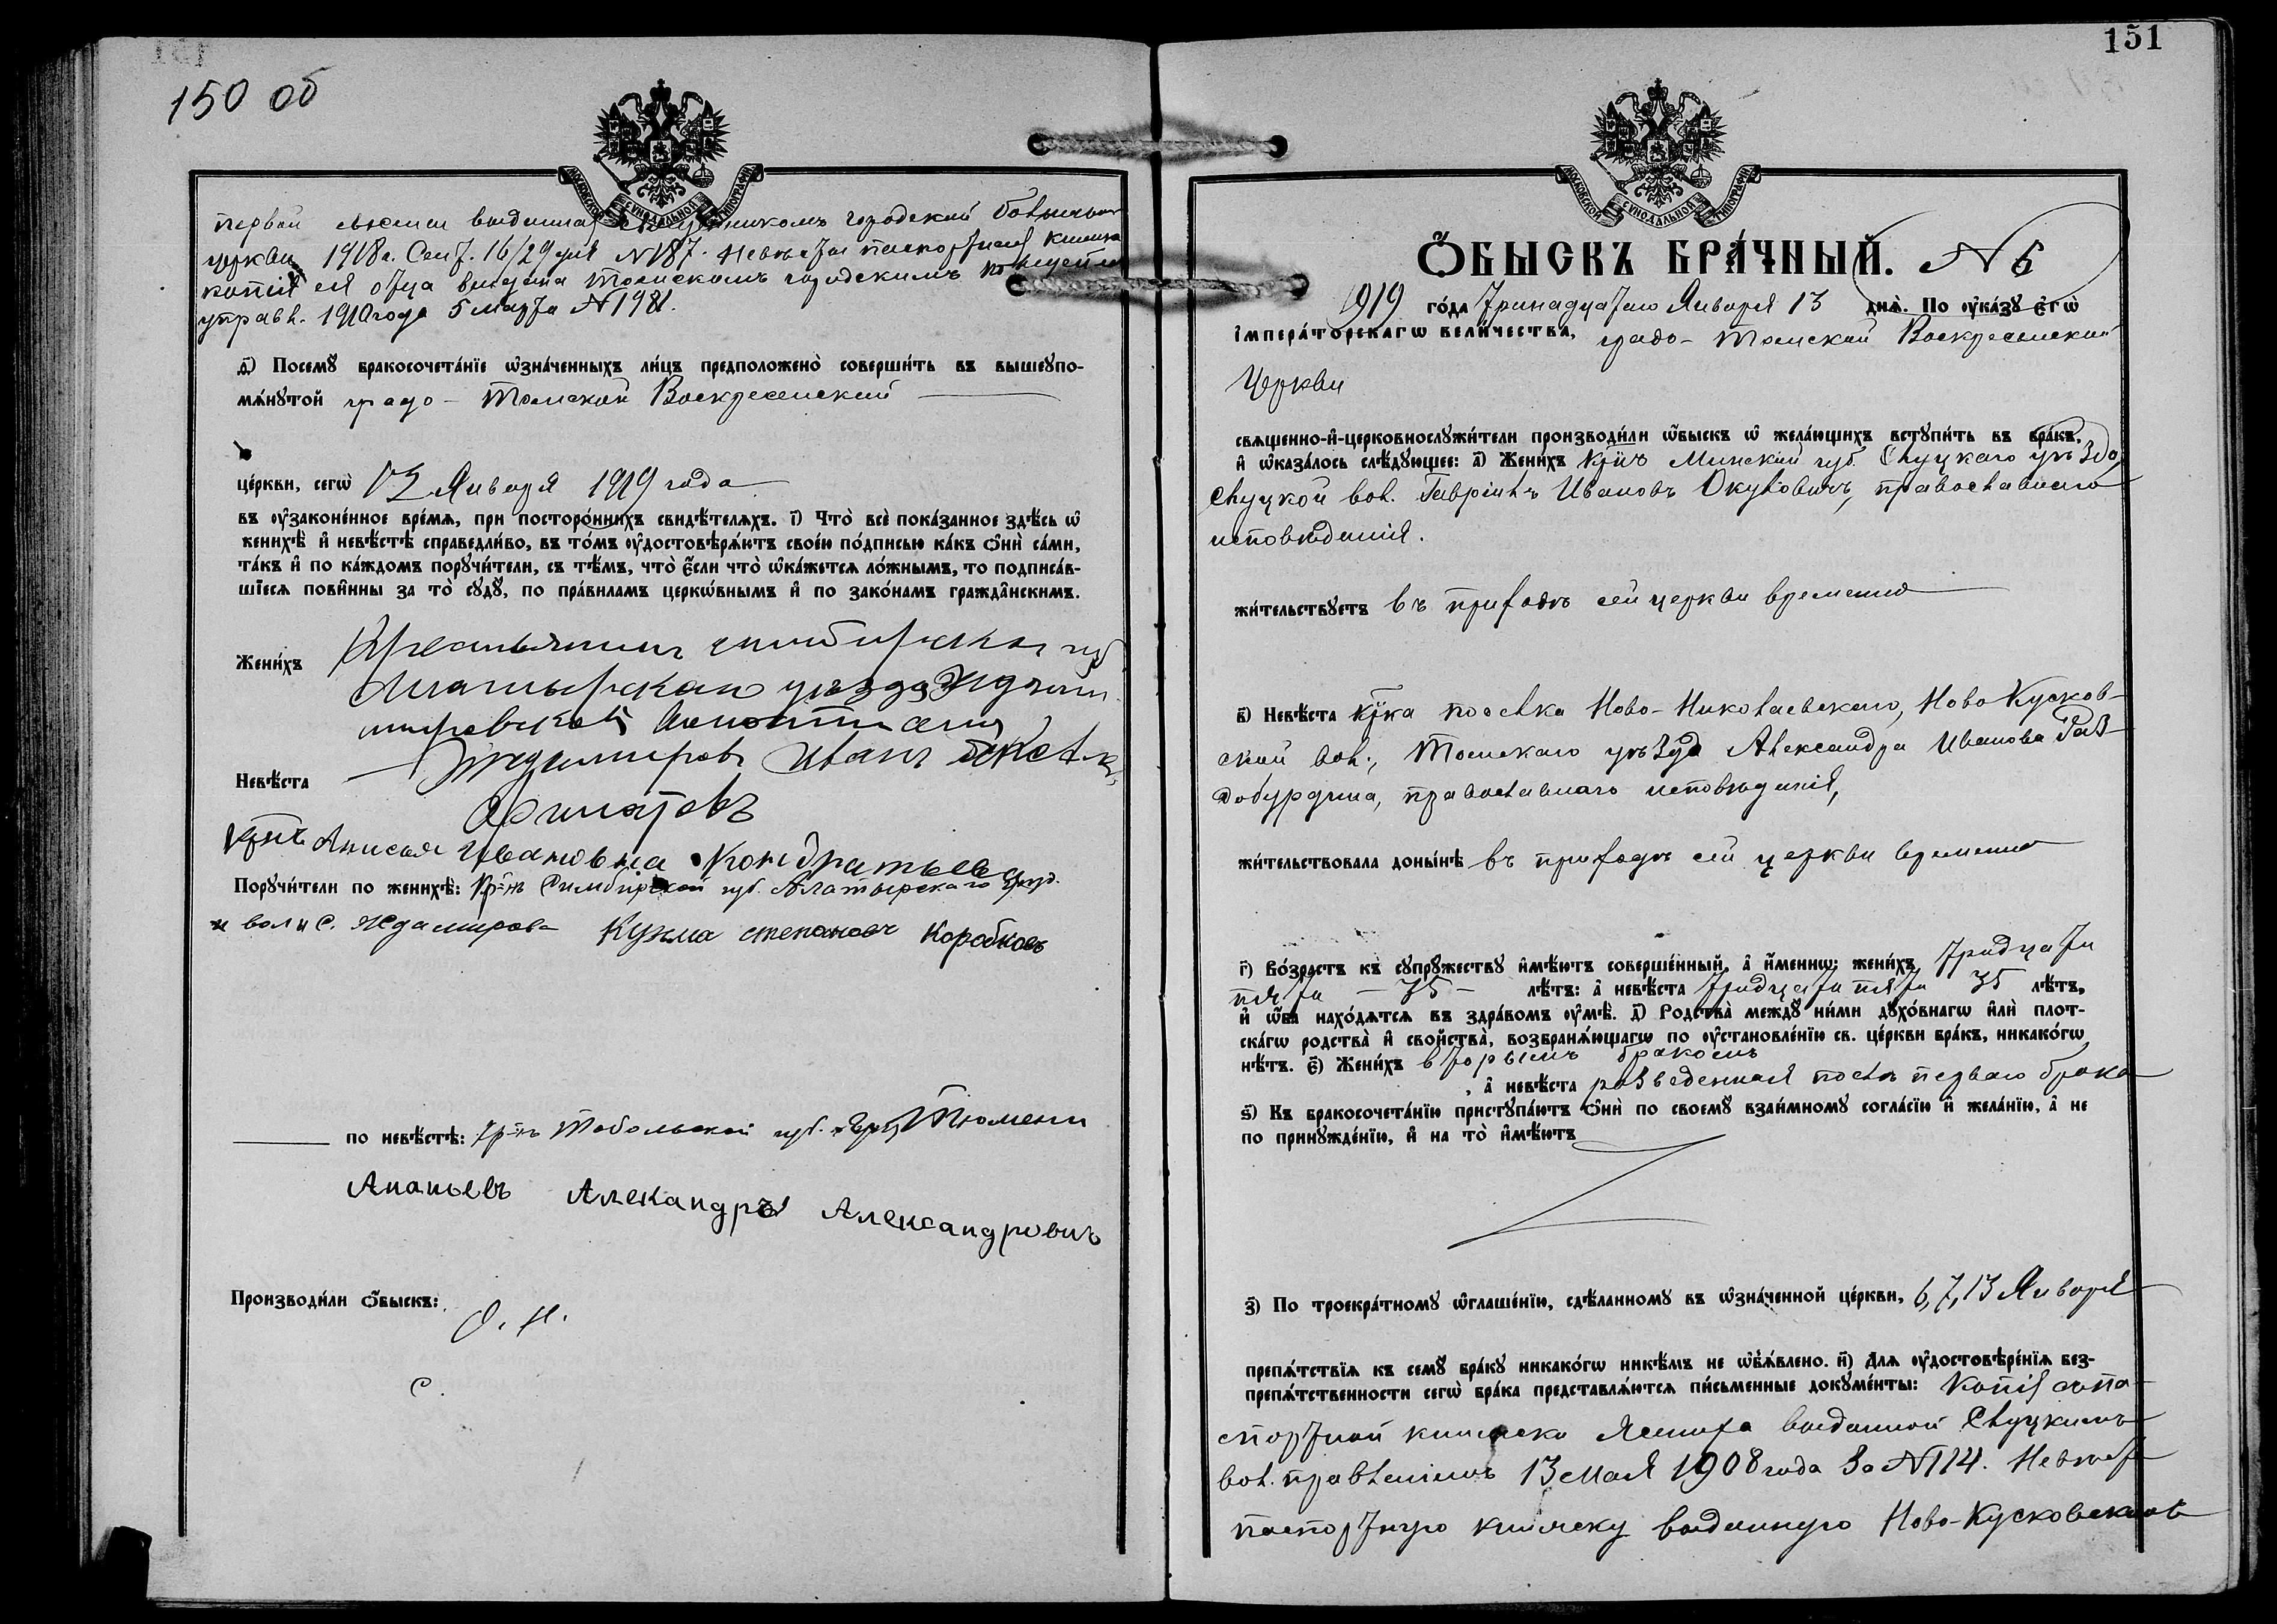 150 об
МОСКОВСКОЙ СѴНОДАЛЬНОЙ ТИПОГРАФІИ
первой выдана городской больничн
церкви 1918 г. Сент. 16/29 дня N187. Невѣста паспортная книжка
копія ея отца выдана Томскимъ городскимъ полицейск
управл. 1910 года 5 марта N 1981.
д҃) Посемꙋ бракосочета́нїе ѡ҆зна́ченныхъ ли́цъ предположено̀ соверши́ть въ вышеꙋпо-
мѧ́нꙋтой градо-Томской Воскресенской
це́ркви, сегѡ̀ 13 Января 1919 года
въ ᲂу҆законе́нное вре́мѧ, при посторо́ннихъ свидѣ́телѧхъ. і҃) Что̀ всѐ пока́занное здѣ́сь ѡ҆
женихѣ̀ и҆ невѣ́стѣ справедли́во, въ то́мъ ᲂу҆достовѣрѧ́ютъ свое́ю по́дписью ка́къ ѻ҆нѝ са́ми,
та́къ и҆ по ка́ждомъ порꙋчи́тели, съ тѣ́мъ, что̀ є҆́сли что̀ ѡ҆ка́жетсѧ ло́жнымъ, то подписа́в-
шїесѧ пови́нны за то̀ сꙋдꙋ̀, по пра́виламъ церко́внымъ и҆ по зако́намъ гражда́нскимъ.
Жени́хъ Крестьянинъ симбирской губ
Алатырскаго уезда Ждами
мировской волости села
Невѣ́ста Ждамиров Иванъ Алексѣ
Филатовъ
Крнъ Анисья Ивановна Кондратьева
Порꙋчи́тели по женихѣ̀: Кр-нъ Симбирской губ. Алатырскаго уезд.
и вол и с. Ждамирова Кузма степановъ Коробковъ
по невѣ́стѣ: Кр-нъ Тобольской губ. Тюмени
Ананьевъ Александръ Александровичъ
Производи́ли ѻ҆́быскъ:
О. Н.
С.
151
МОСКОВСКОЙ СѴНОДАЛЬНОЙ ТИПОГРАФІИ
Ѻ҆́БЫСКЪ БРА́ЧНЫЙ. N 6
1919 го́да тринадцатаго Января 13 днѧ̀. По ᲂу҆ка́зꙋ Є҆гѡ̀
І҆мпера́торскагѡ вели́чества, градо-Томской Воскресенской
Церкви
свѧще́нно-и҆-церковнослꙋжи́тели производи́ли ѻ҆́быскъ ѡ҆ жела́ющихъ встꙋпи́ть въ бра́къ,
и҆ ѡ҆каза́лось слѣ́дꙋющее: а҃) Жени́хъ Крнъ Минской губ. Слуцкаго уѣзда,
Слуцкой вол. Гавріилъ Ивановъ Окуловичъ, православнаго
исповѣданія.
жи́тельствꙋетъ въ приходѣ сей церкви временно
в҃) Невѣ́ста Кр-ка поселка Ново-Николаевскаго, Ново Кусков-
ской вол., Томскаго уѣзда Александра Иванова Раз-
добурдина, православнаго исповѣданія,
жи́тельствовала доны́нѣ въ приходѣ сей церкви временно
г҃) Во́зрастъ къ сꙋпрꙋ́жествꙋ и҆мѣ́ютъ соверше́нный, а҆ и҆́менно: жени́хъ тридцати
пяти – 35 – лѣ́тъ: а҆ невѣ́ста тридцати пяти 35 лѣ́тъ,
и҆ ѻ҆́ба нахо́дѧтсѧ въ здра́вомъ ᲂу҆мѣ̀. д҃) Родства̀ междꙋ̀ ни́ми дꙋхо́внагѡ и҆лѝ плот-
ска́гѡ родства̀ и҆ сво́йства̀, возбранѧ́ющагѡ по ᲂу҆становле́нїю св. це́ркви бра́къ, никако́гѡ
нѣ́тъ. є҃) Жени́хъ вторымъ бракомъ
, а҆ невѣ́ста разведенная послѣ перваго брака
ѕ҃) Къ бракосочета́нїю пристꙋпа́ютъ ѻ҆нѝ по своемꙋ̀ взаи́мномꙋ согла́сїю и҆ жела́нїю, а҆ не
по принꙋжде́нїю, и҆ на то̀ и҆мѣ́ютъ
з҃) По троекра́тномꙋ ѡ҆глаше́нїю, сдѣ́ланномꙋ въ ѡ҆зна́ченной це́ркви, 6, 7, 13 Января
препѧ́тствїѧ къ семꙋ̀ бра́кꙋ никако́гѡ никѣ́мъ не ѡ҆б̾ѧ́влено. и҃) Длѧ ᲂу҆достовѣре́нїѧ без-
препѧ́тственности сегѡ̀ бра́ка представлѧ́ютсѧ пи́сьменные докꙋме́нты: Копія съ па-
спортной книжки жениха выданной Слуцкимъ
вол. правленіемъ 13 мая 1908 года за N 114. Невѣста
паспортную книжку выданную Ново-Кусковскимъ